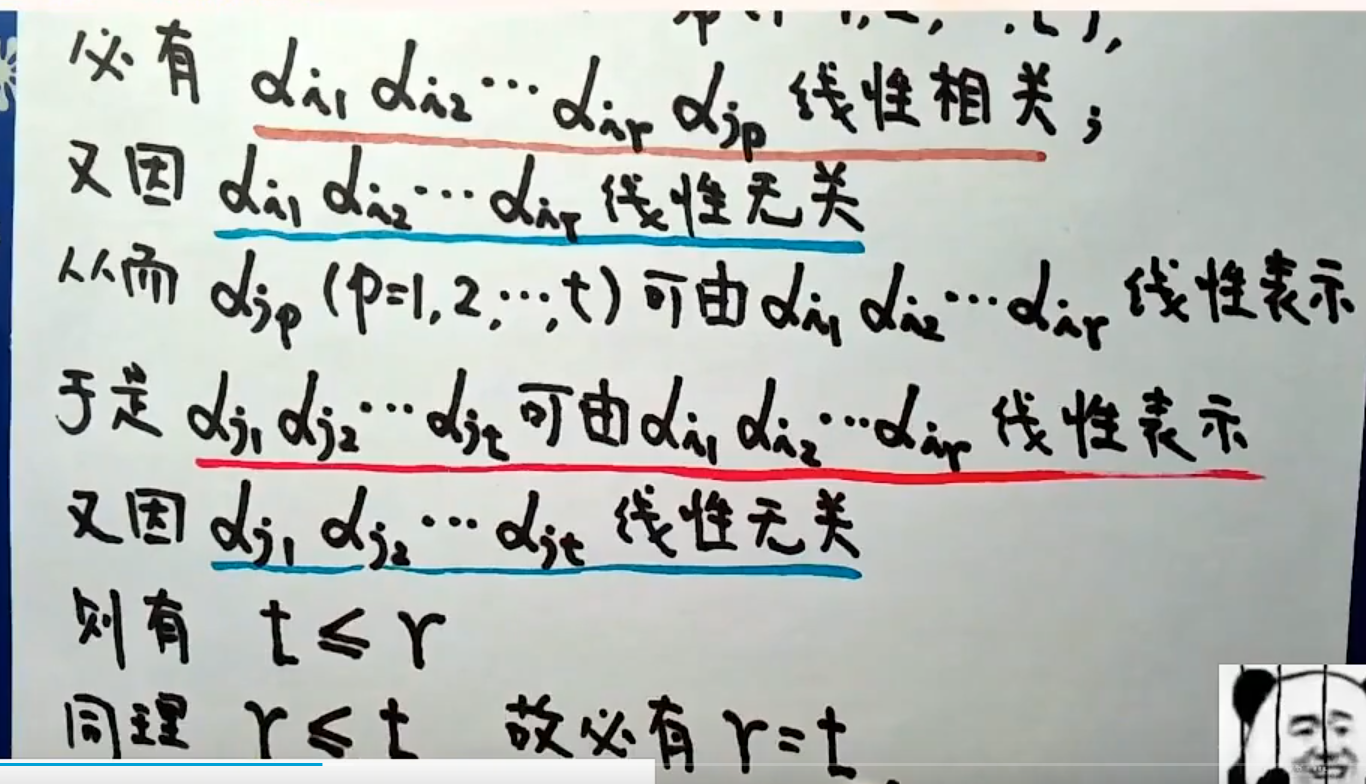 必有 αi1 αi2 ⋯ αir αjp 线性相关;
又因 αi1 αi2 ⋯ αir 线性无关
从而 αjp (p=1,2,⋯,t) 可由 αi1 αi2 ⋯ αir 线性表示
于是 αj1 αj2 ⋯ αjt 可由 αi1 αi2 ⋯ αir 线性表示
又因 αj1 αj2 ⋯ αjt 线性无关
则有 t ≤ r
同理 r ≤ t 故必有 r = t.